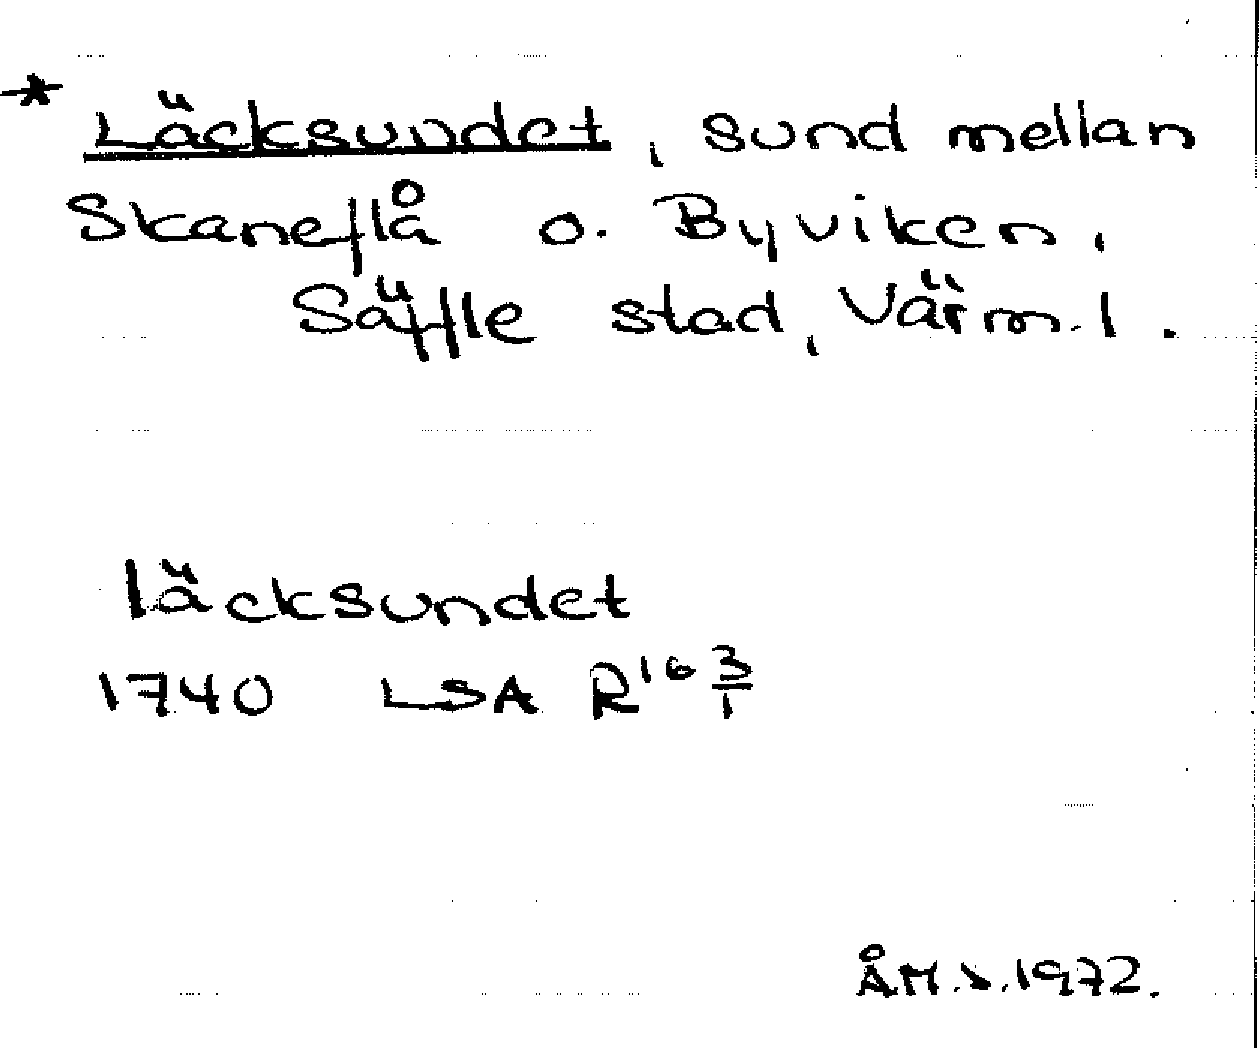 * Läcksundet, sund mellan
Skaneflå o. Byviken,
Säffle stad, Värml.
läcksundet
1740 LSA R¹⁶ 3/1
ÅM. 1972.